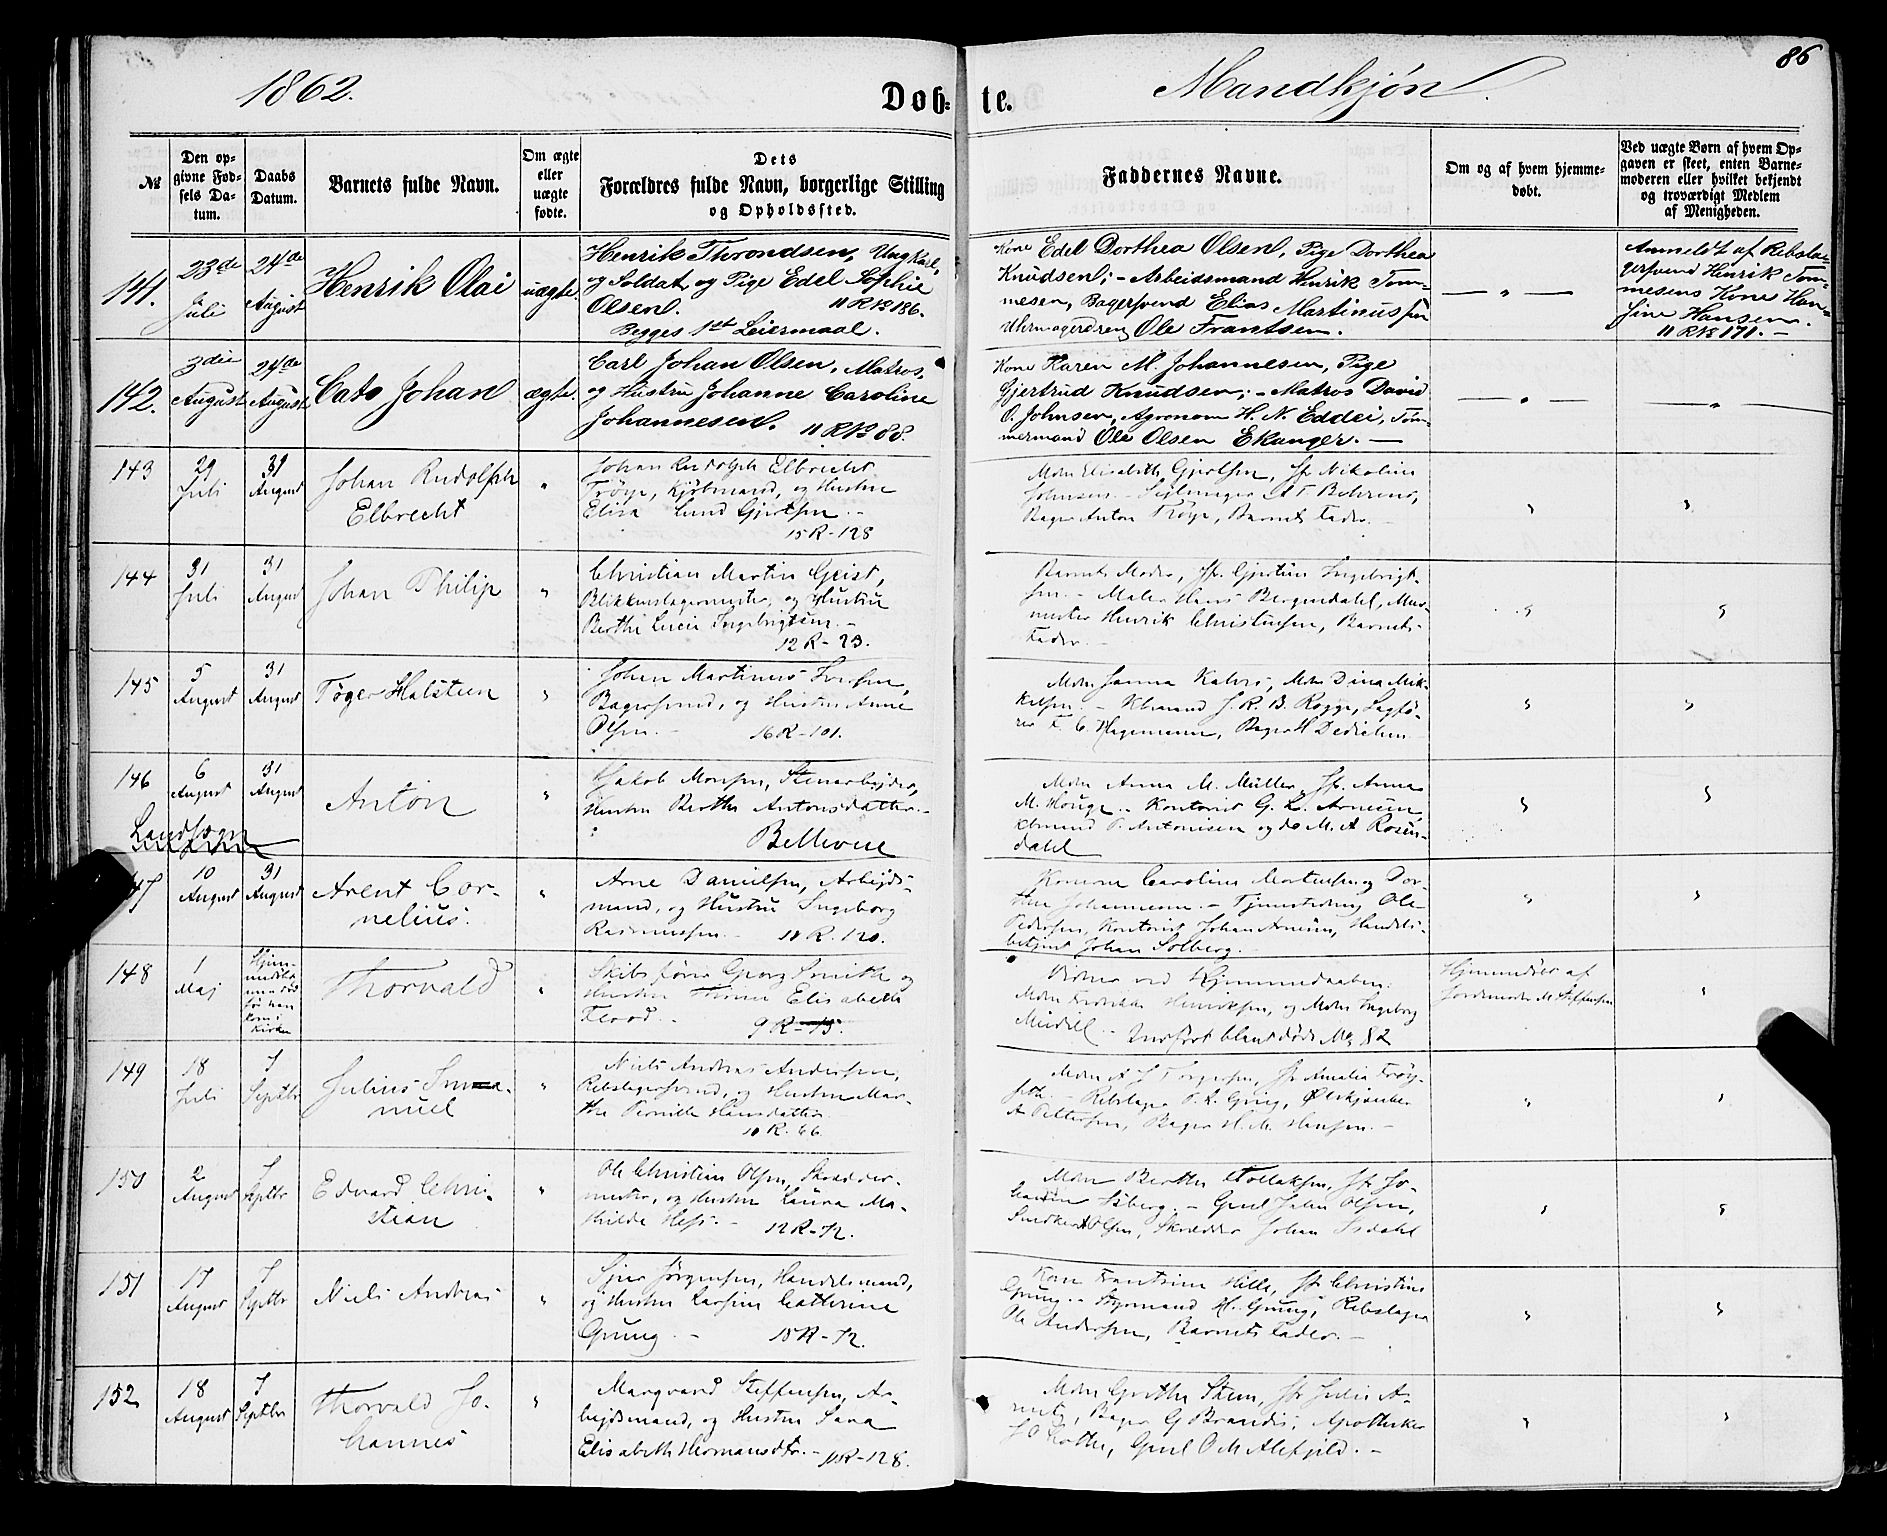 86
1862.
Døb-
te.
Mandkjön.
№
Den op-
givne Fød-
sels Da-
tum.
Daabs
Datum.
Barnets fulde Navn.
Om ægte
eller
uægte
fødte.
Dets
Forældres fulde Navn, borgerlige Stilling
og Opholdssted.
Faddernes Navne.
Om og af hvem hjemme-
døbt.
Ved uægte Børn af hvem Op-
gaven er skeet, enten Barne-
moderen eller hvilket bekjendt
og troværdigt Medlem
af Menigheden.
141.
23de
Juli
24de
August
Henrik Olai
uægte.
Henrik Throndsen, Ungkarl,
og Soldat, og Pige Edel Sophie
Olsen. 11 R № 186.
Begges 1st Leiermaal.
Kone Edel Dorthea Olsen, Pige Dorthea
Knudsen; – Arbeidsmand Henrik Tom-
mesen, Bagersvend Elias Martinussen
Uhrmagerdreng Ole Frantsen.
— " —
Anmeldt af Rebsla-
gersvend Henrik Tom-
mesens Kone Han-
sine Hansen.
11 R № 171. –
142.
3die
August
24de
August
Cato Johan
ægte.
Carl Johan Olsen, Matros,
og Hustru Johanne Caroline
Johannesen. 11 R № 88.
Kone Karen M. Johannesen, Pige
Gjertrud Knudsen; – Matros David
O. Johnsen, Agronom H. N. Eddei, Tøm-
mermand Ole Olsen Ekanger. —
— " —
— " —
143
29
Juli
31
August
Johan Rudolph
Elbrecht
"
Johan Rudolph Elbrecht
Tröye, Kjöbmand, og Hustru
Elisa Lund Gjertsen. –
15 R – 128
Mdm Elisabeth Gjertsen, Jfr Nikoline
Johnsen. – Seilmager A T Behrens,
Bager Anton Tröye, Barnets Fader. –
"
"
144
31
Juli
31
August
Johan Philip
"
Christian Martin Geist,
Blikkenslagermester, og Hustru
Berthe Lucie Ingebrigtsen. –
12 R – 23.
Barnets Moder, Jfr Gjertine Ingebrigt-
sen. – Maler Hans Bergendahl, Mur-
mester Henrik Christensen, Barnets
Fader. –
"
"
145
5
August
31
August
Töger Halsteen
"
Johan Martinus Iversen,
Bagersvend, og Hustru Anne
Olsen. – 16 R – 101.
Mdm Janna Kahrs, Mdm Dina Mik-
kelsen. – Kbmand J. R. B. Rogge, Sagfö-
rer F. C. Hagemann, Bager H Dedichen
"
"
146
6
August
31
August
Anton
"
Jakob Monsen, Stenarbejder,
Hustru Berthe Antonsdatter. –
Bellevue
Mdm Anna M. Müller, Jfr Anna
M. Houge. – Kontorist G. L. Arnesen,
Kbmand T. Antonisen og do M. A Rosen-
dahl
"
"
Landsogn
147
10
August
31
August
Arent Cor-
nelius.
"
Arne Danielsen, Arbejds-
mand, og Hustru Ingeborg
Rasmussen. – 11 R. 120.
Konerne Caroline Mortensen og Dor-
thea Johannesen. – Tjenestedreng Ole
Pedersen, Kontorist Johan Arnesen, Handels-
betjent Johan Solberg. –
"
"
148
1
Maj
Hjem-
medöbt
men död
för han
kom i
Kirken
Thorvald
"
Skibsförer Georg Smith og
Hustru Thrine Elisabeth
Flood. – 9 R – 15.
Vidner ved Hjemmedaaben:
Mdm Fredrikke Henriksen, og Mdm Ingeborg
– Indfört blant döde № 82
Hjemmedöbt af
Jordemoder M. Steffensen
"
149
18
Juli
7
Septbr
Julius Ema-
nuel
"
Niels Andreas Andersen,
Rebslagersvend, og Hustru Mar-
the Pernille Hansdatter.
11 R. 66.
Mdm A J Torgersen, Jfr Amalia Fröy-
seth. – Rebslager T. L. Grieg, Ölskjænker
A Pettersen, Bager H. M. Hansen. –
"
"
150
2
August
7
Septbr
Edvard Chri-
stian
"
Ole Christian Olsen, Skrædder-
mester, og Hustru Laura Ma-
thilde Hess. – 12 R – 72.
Mdm Berthe Tollaksen, Jfr Jo-
hanne Isberg. – Guul John Olsen,
Snedker A Olsen, Skrædder Johan Isdahl
"
"
151
17
August
7
Septbr
Niels Andreas
"
Sjur Jörgensen, Handelsmand,
og Hustru Larsine Cathrine
Grung. – 18 R – 72.
Kone Frantsine Hille, Jfr Christine
Grung. – Styrmand H. Grung, Rebslager
Ole Andersen, Barnets Fader. –
"
"
152
18
August
7
Septbr
Thorvald Jo-
hannes
"
Marqvard Steffensen, Ar-
bejdsmand, og Hustru Sara
Elisabeth Hermansdtr. – 11 R – 128.
Mdm Grethe Steen, Jfr Julie A-
rentz, Bager G Brandis, Apotheker
J C Kothe, Guul O M Alefjeld. –
"
"